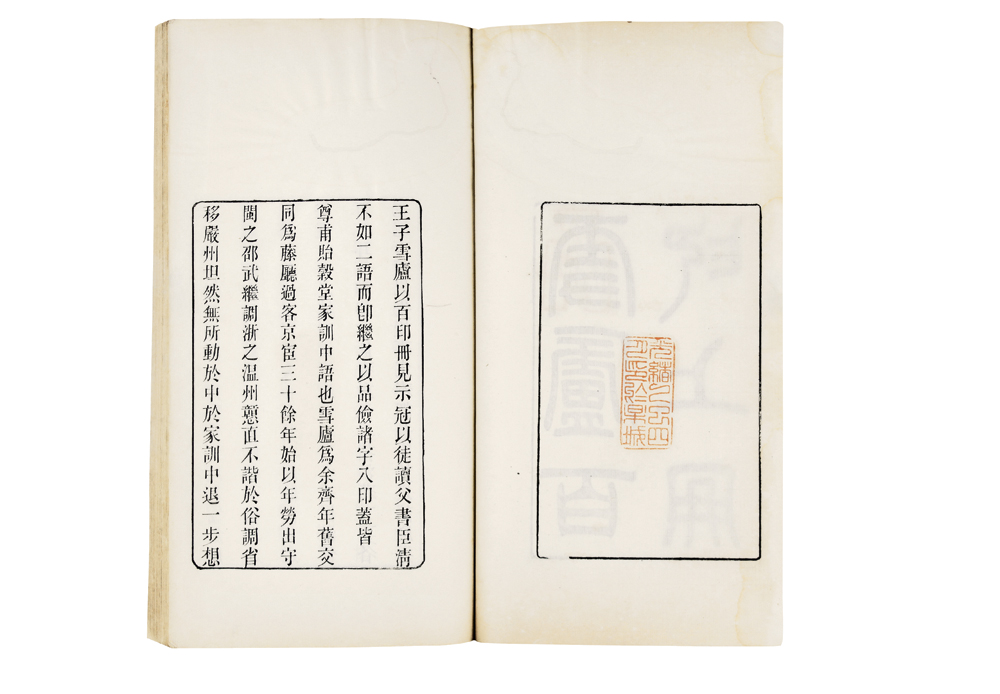 光緒四
月印於城
王子雪廬以百印冊見示冠以徒讀父書臣淸
不如二語而卽繼之以品儉諸字八印蓋皆
尊甫貽穀堂家訓中語也雪廬爲余齊年舊交
同爲藤廳過客京宦三十餘年始以年勞出守
閩之邵武繼調浙之温州戇直不諧於俗調省
移嚴州坦然無所動於中於家訓中退一步想